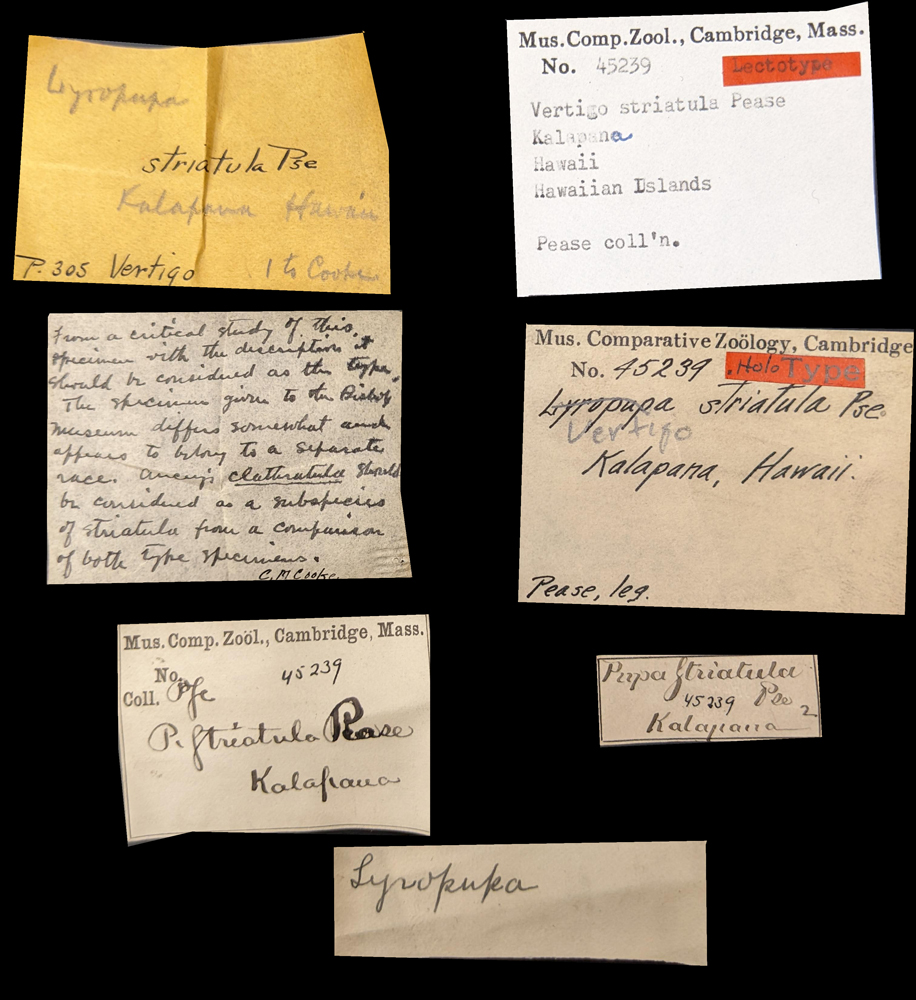 Lyropupa
striatula Pse
Kalapana Hawaii
P. 305 Vertigo 1 to Cooke
Mus. Comp. Zool., Cambridge, Mass.
No. 45239 Lectotype
Vertigo striatula Pease
Kalapana
Hawaii
Hawaiian Dslands
Pease coll'n.
From a critical study of this
specimen with the description it
should be considered as the type.
The specimen given to the Bishop
Museum differs somewhat and
appears to belong to a separate
race. Ancey's clathratula should
be considered as a subspecies
of striatula from a comparison
of both type specimens.
C. M Cooke.
Mus. Comparative Zoölogy, Cambridge
No. 45239 Holo Type
Lyropupa striatula Pse.
Vertigo
Kalapana, Hawaii.
Pease, leg.
Mus. Comp. Zoöl., Cambridge, Mass.
No. 45239
Coll. Pse
P. striatula Pease
Kalapana
Pupa striatula
45239 Pse 2
Kalapana
Lyropupa